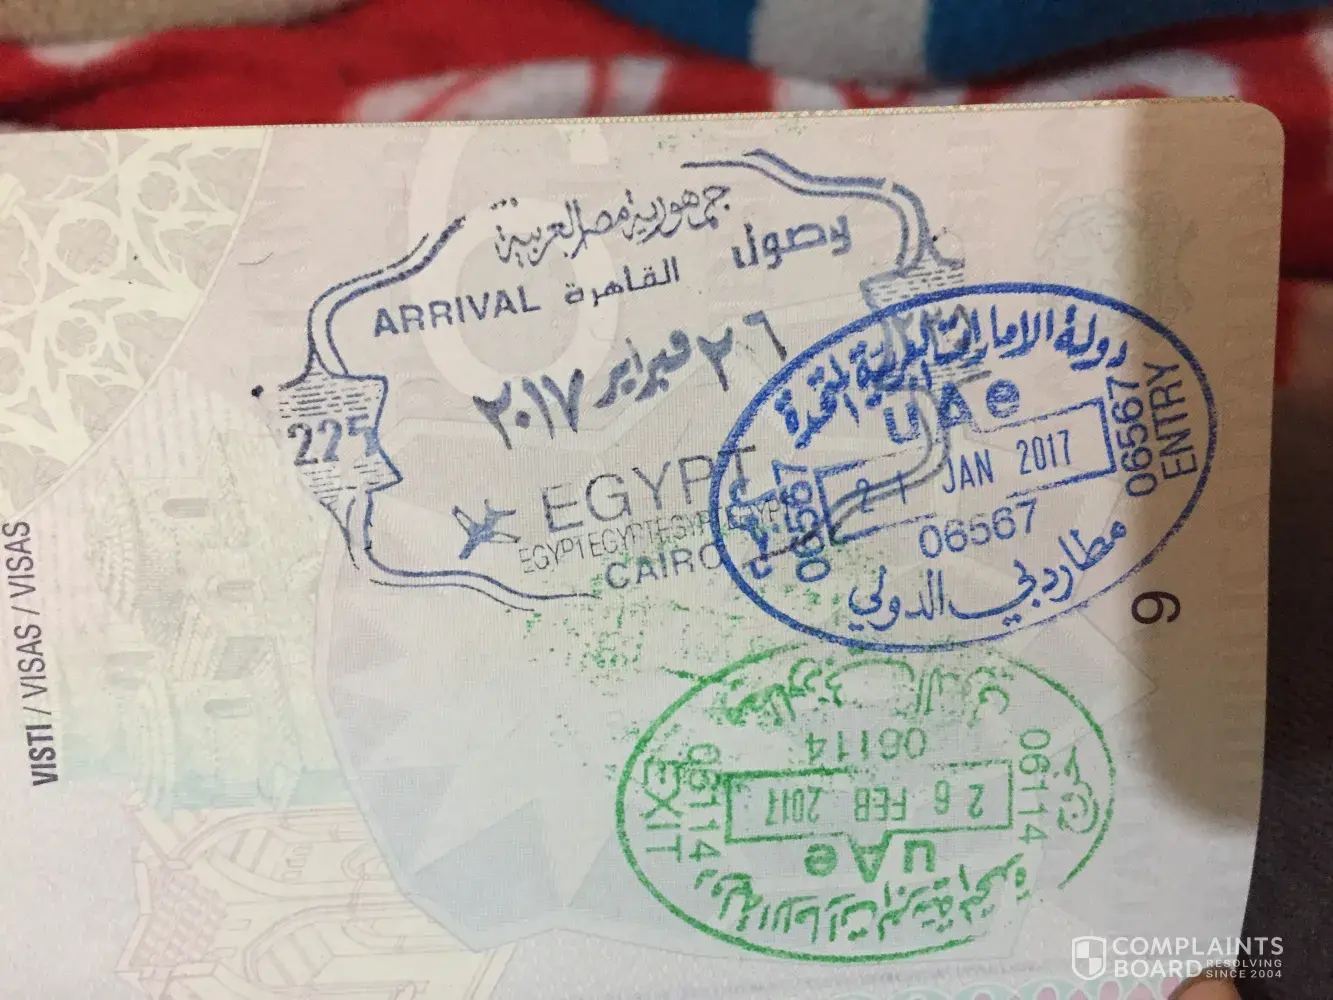 جمهورية مصر العربية
وصول
ARRIVAL القاهرة
٢٦ فبراير ٢٠١٧
225
EGYPT
EGYPTEGYPTEGYPTEGYPT
CAIRO
دولة الامارات العربية المتحدة
UAe
21 JAN 2017
06567
06567
06567
ENTRY
مطار دبي الدولي
06114
06114
06114
EXIT
26 FEB 2017
UAe
دولة الامارات العربية المتحدة
VISTI / VISAS / VISAS
9
COMPLAINTS
BOARD RESOLVING
SINCE 2004